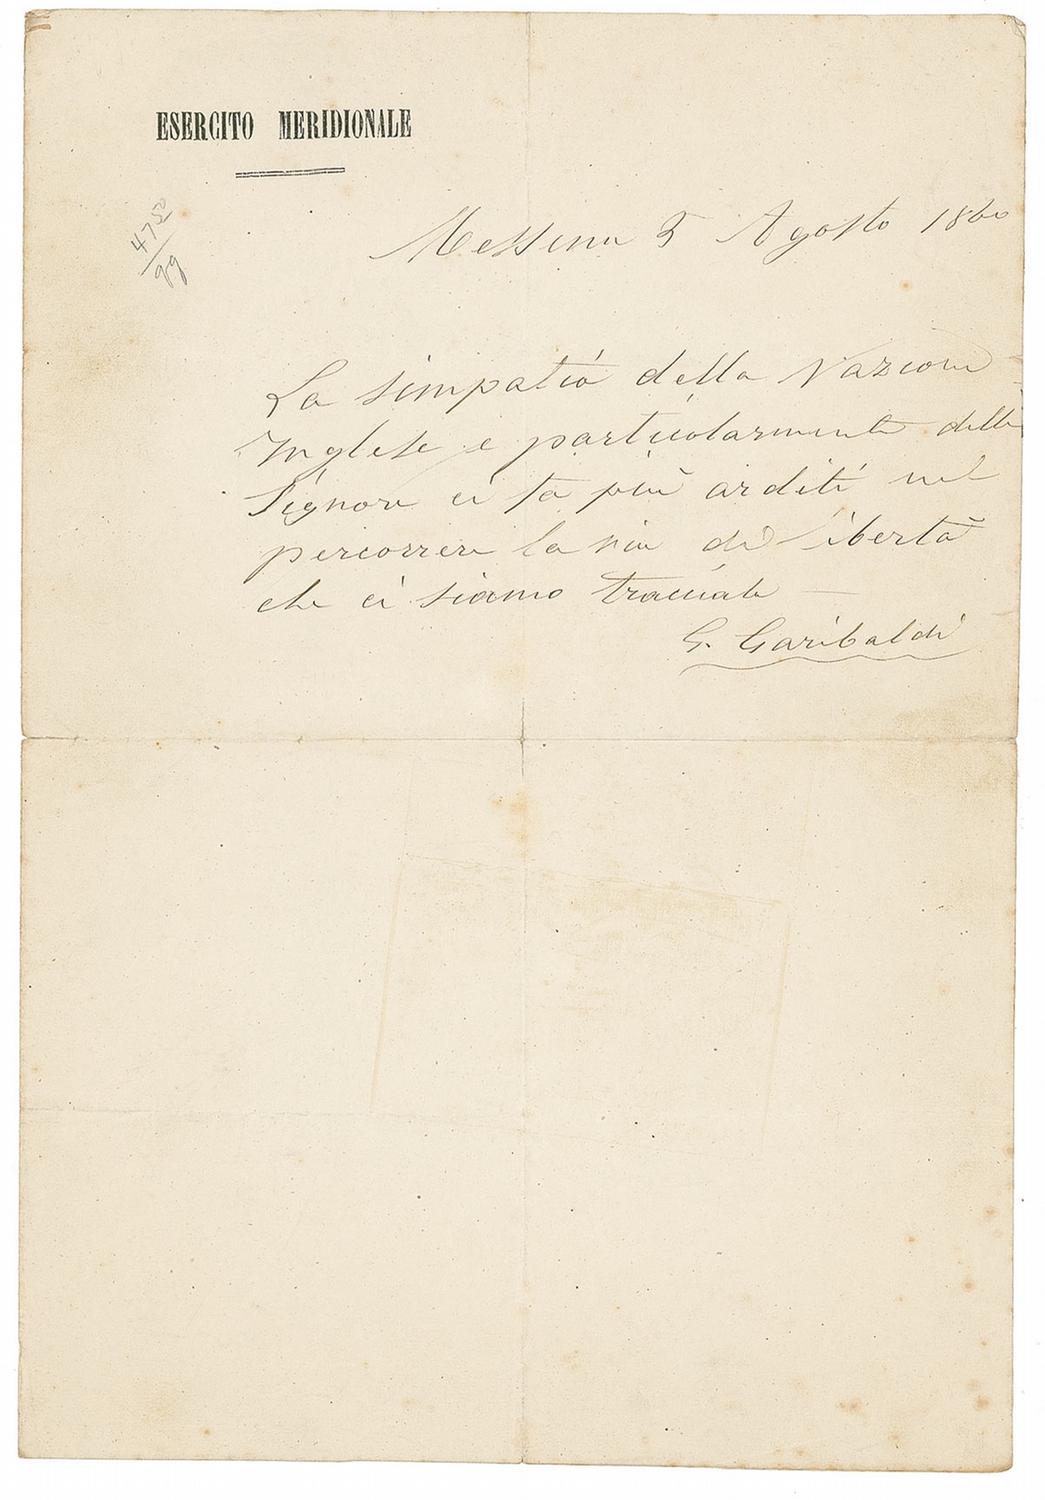 ESERCITO MERIDIONALE
4750
99
Messina 5 Agosto 1860
La simpatia della Nazione
Inglese e particolarmente delle
Signore ci fa più arditi nel
percorrere la via di libertà
che ci siamo tracciata
G. Garibaldi